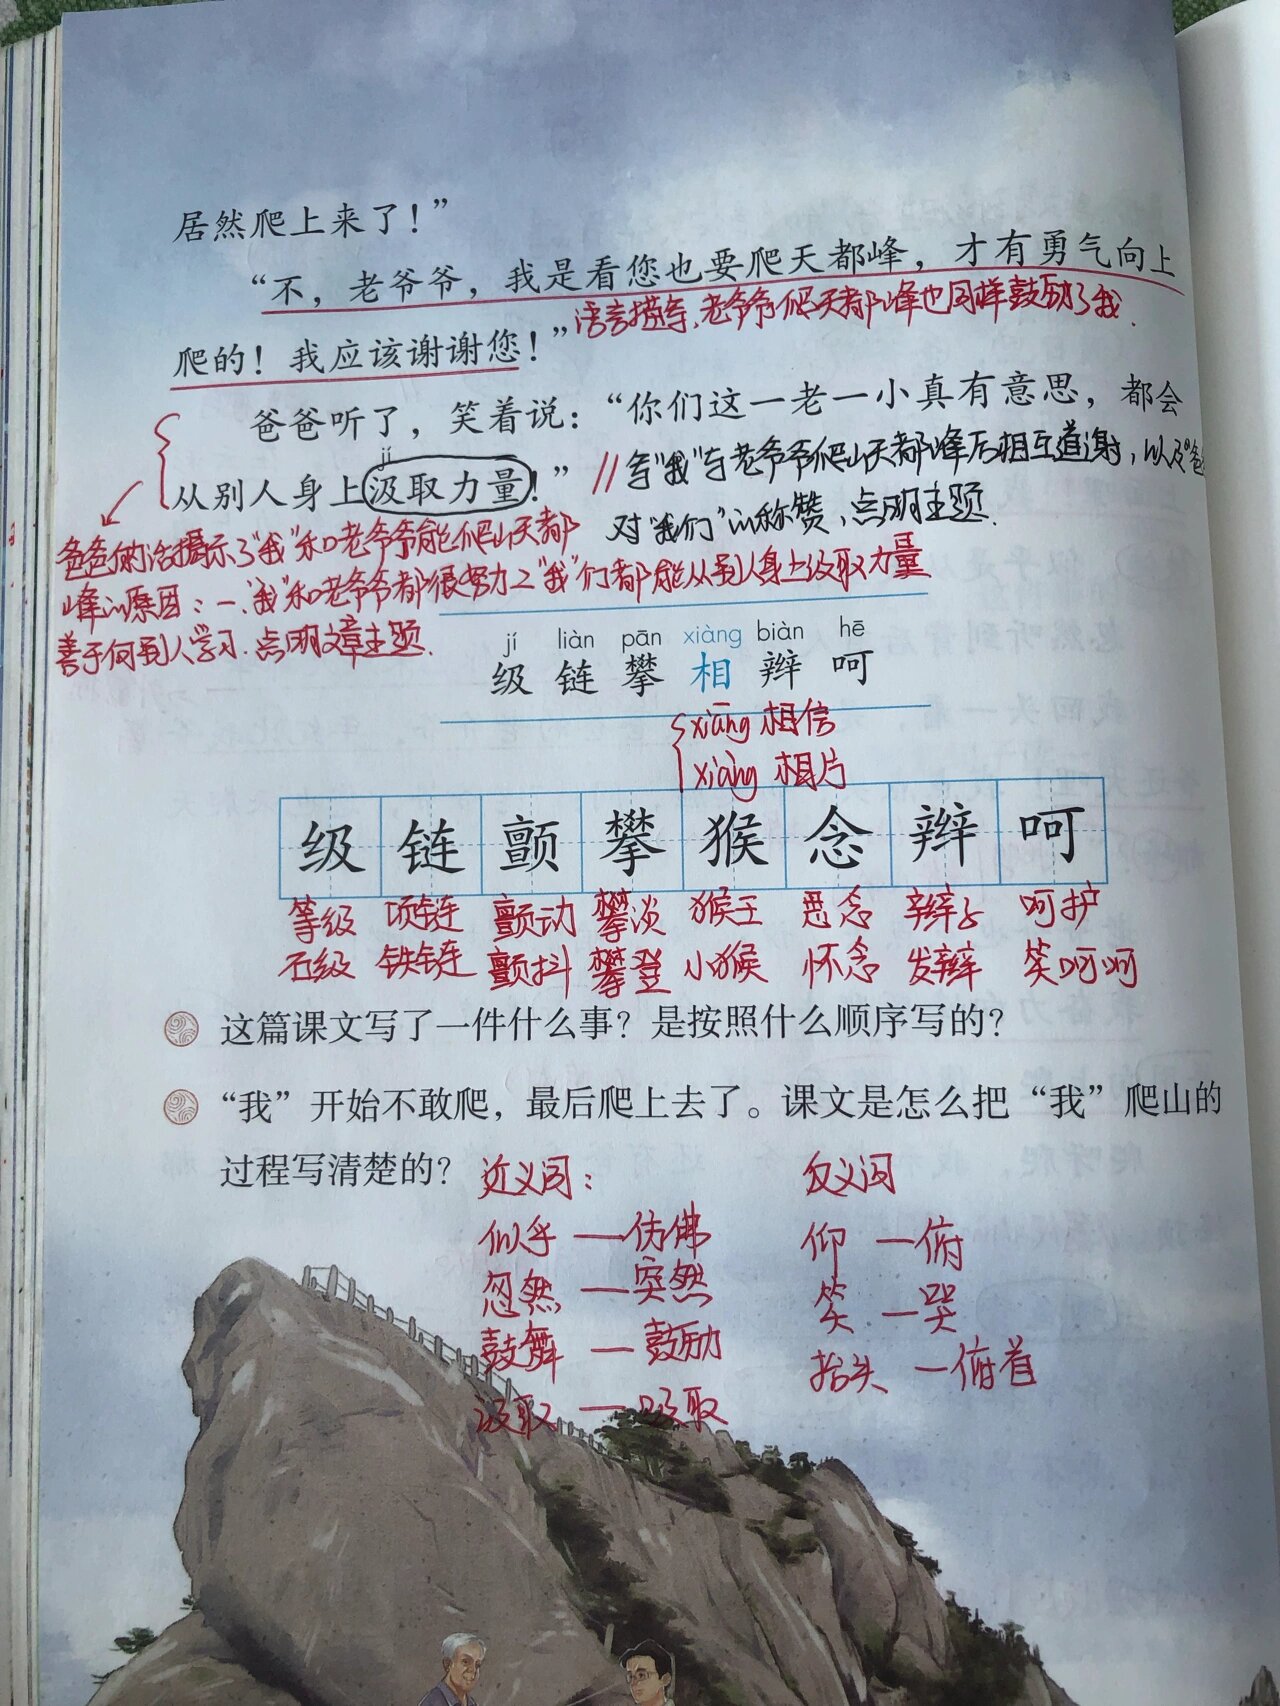 居然爬上来了！”
“不，老爷爷，我是看您也要爬天都峰，才有勇气向上
语言描写,老爷爷爬天都峰也同样鼓励了我.
爬的！我应该谢谢您！”
爸爸听了，笑着说：“你们这一老一小真有意思，都会
jí
从别人身上汲取力量！”
//写“我”与老爷爷爬山天都峰后相互道谢,以及“爸
对“我们”的称赞,点明主题.
爸爸的话揭示了“我”和老爷爷能爬山天都
峰的原因:一、“我”和老爷爷都很努力2“我”们都能从别人身上汲取力量
善于向别人学习.点明文章主题.
jí liàn pān xiàng biàn hē
级 链 攀 相 辫 呵
xiāng 相信
xiàng 相片
级 链 颤 攀 猴 念 辫 呵
等级 项链 颤动 攀谈 猴王 悉念 辫子 呵护
石级 铁链 颤抖 攀登 小猴 怀念 发辫 笑呵呵
这篇课文写了一件什么事？是按照什么顺序写的？
“我”开始不敢爬，最后爬上去了。课文是怎么把“我”爬山的
过程写清楚的？
近义词: 反义词
似乎—仿佛 仰—俯
忽然—突然 笑—哭
鼓舞—鼓励 抬头—俯首
汲取—吸取